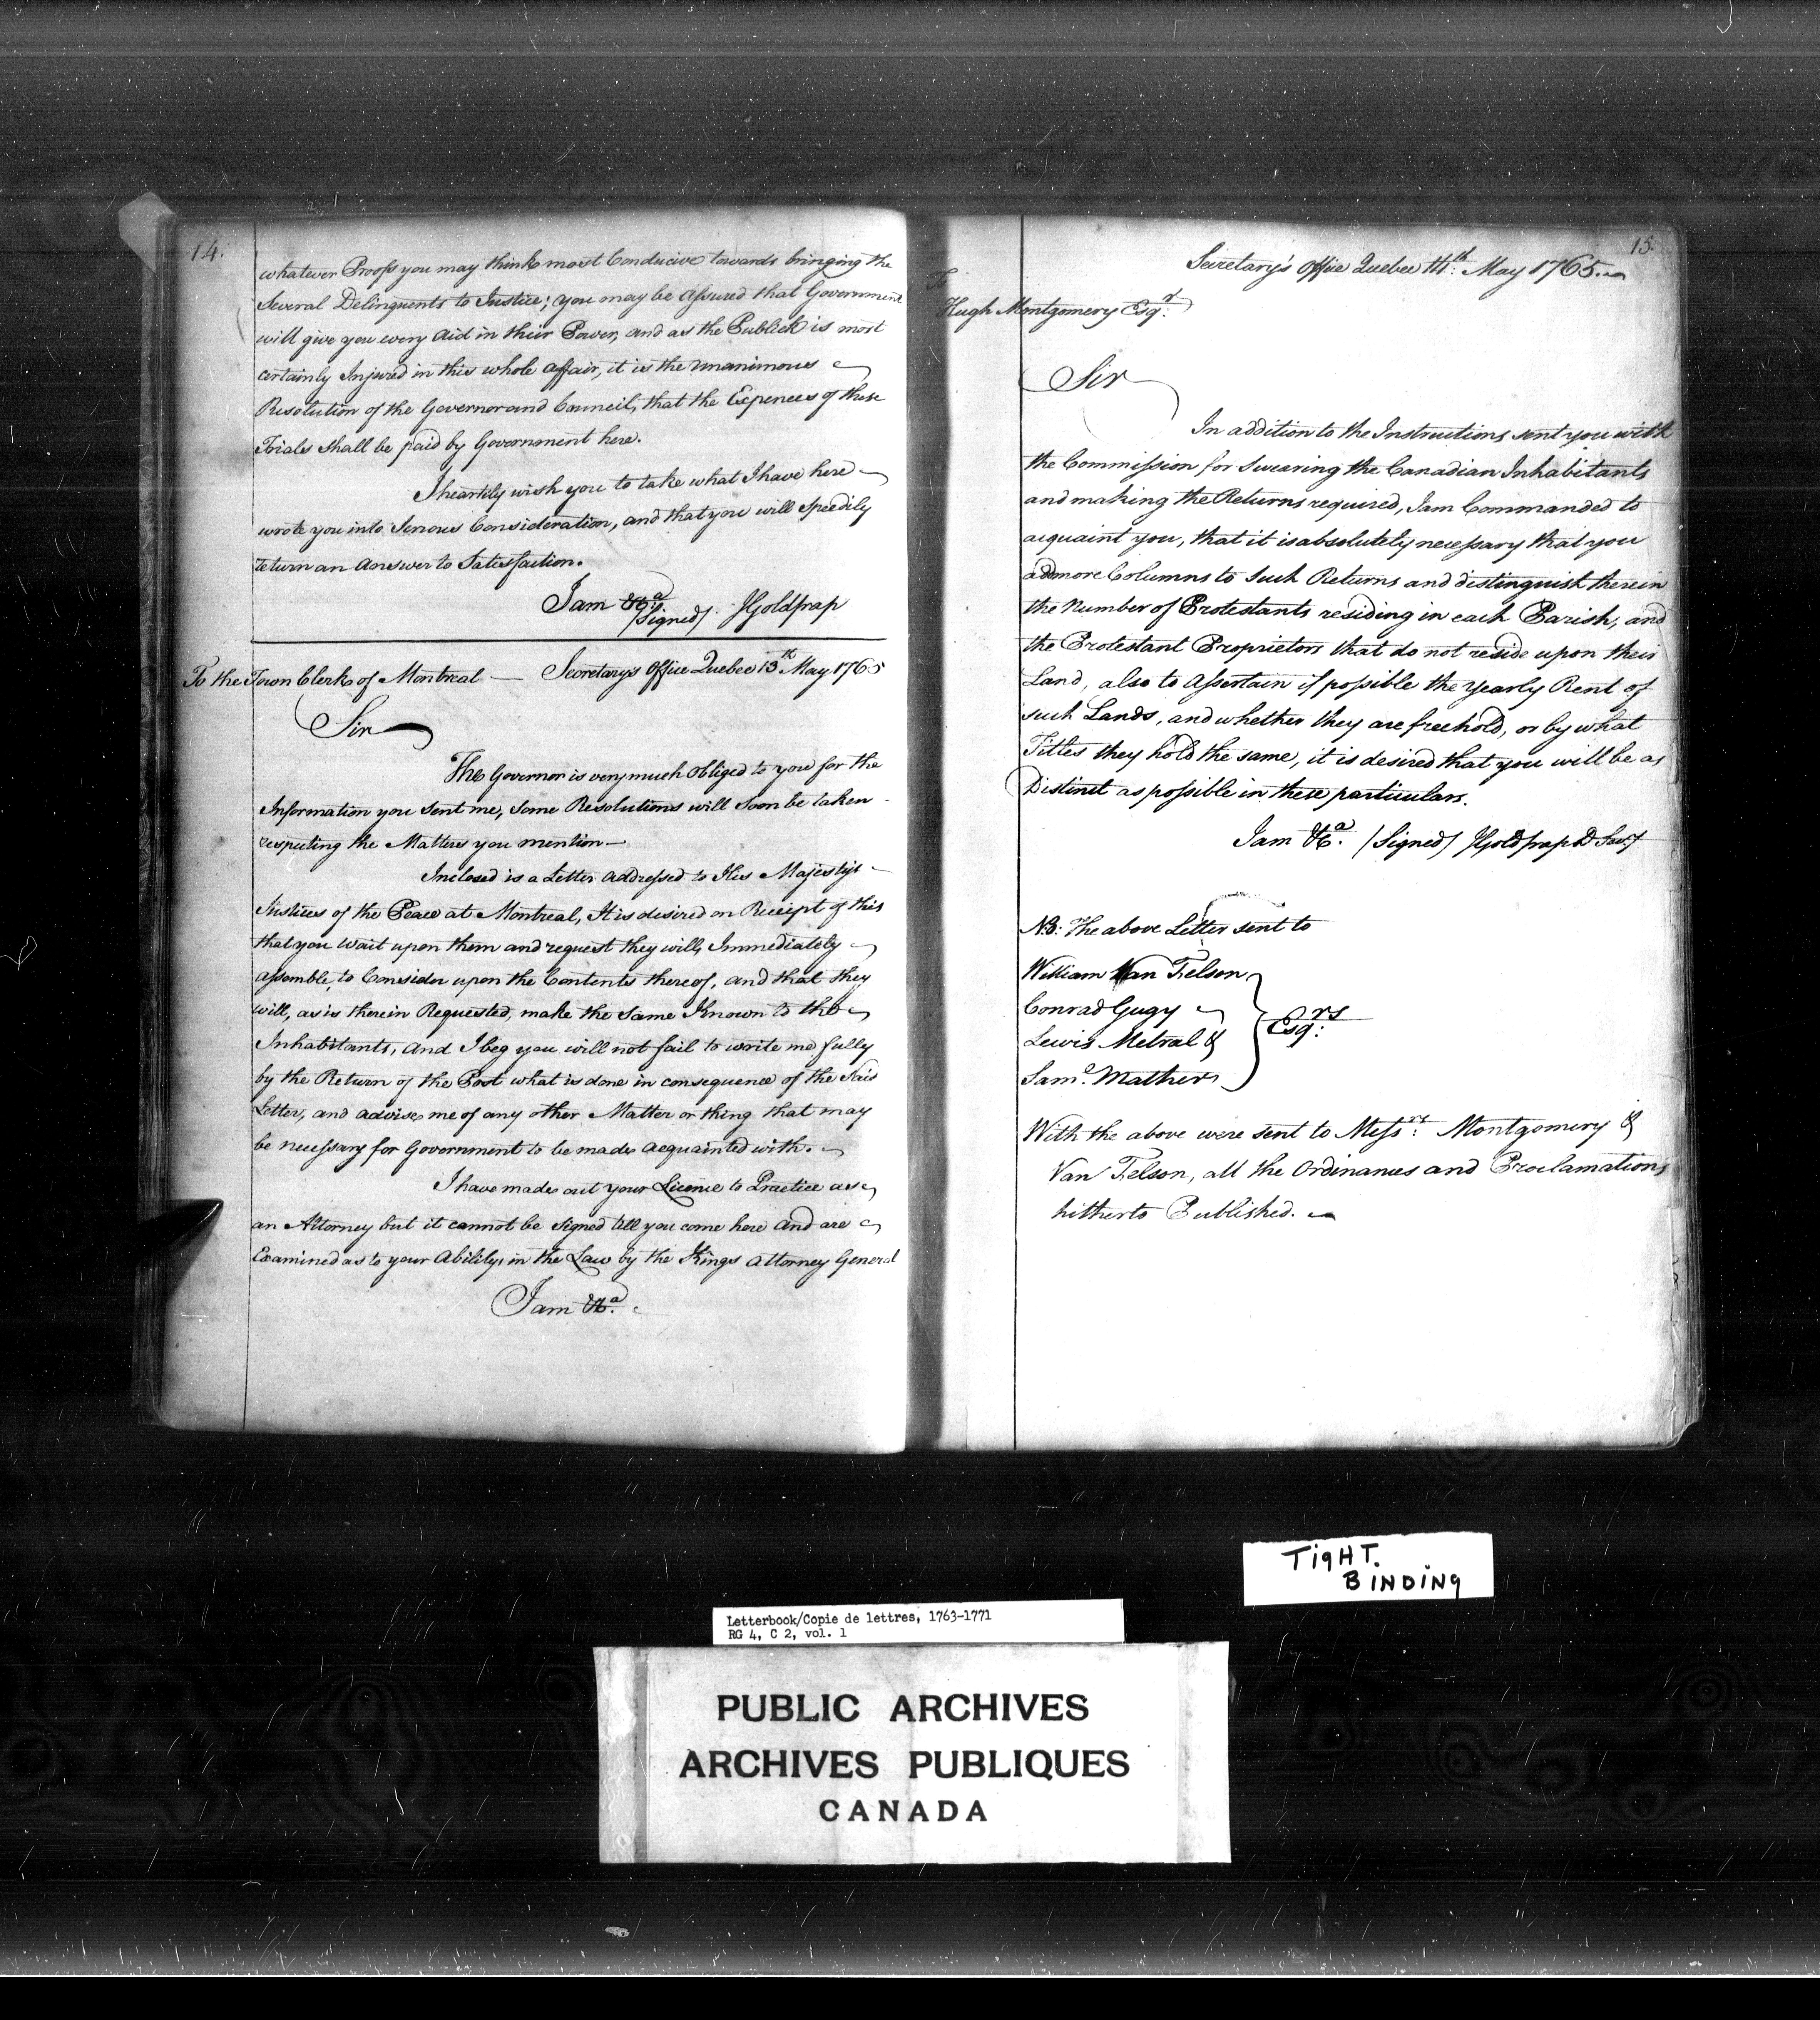 14.
whatever Proofs you may think most Conducive towards bringing the
Several Delinquents to Justice; you may be Assured that Government
will give you every Aid in their Power, and as the Publick is most
certainly Injured in this whole affair, it is the unanimous
Resolution of the Governor and Council, that the Expences of these
Trials shall be paid by Government here.
I heartily wish you to take what I have here
wrote you into Serious Consideration, and that you will speedily
return an Answer to Satisfaction.
I am &c.a
/Signed/. JGoldfrap
To the Town Clerk of Montreal — Secretary's Office Quebec 13th May 1765
Sir
The Governor is very much obliged to you for the
Information you sent me, some Resolutions will soon be taken
respecting the Matters you mention —
Inclosed is a Letter addressed to His Majesty's
Justices of the Peace at Montreal, It is desired on Receipt of this
that you Wait upon them and request they will Immediately
assemble, to Consider upon the Contents thereof, and that they
will, as is therein Requested, make the same Known to the
Inhabitants, And I beg you will not fail to write me fully
by the Return of the Post what is done in consequence of the said
Letter, and advise me of any other Matter or thing that may
be necessary for Government to be made acquainted with.
I have made out your Licence to Practice as
an Attorney but it cannot be signed till you come here and are
Examined as to your Ability in the Law by the Kings Attorney General
I am &c.a
15.
Secretary's Office Quebec 14th: May 1765.
To
Hugh Montgomery Esq.r
Sir
In addition to the Instructions sent you with
the Commission for swearing the Canadian Inhabitants
and making the Returns required, I am Commanded to
acquaint you, that it is absolutely necessary that you
add more Columns to such Returns and distinguish therein
the Number of Protestants residing in each Parish, and
the Protestant Proprietors that do not reside upon their
Land, also to Assertain if possible the Yearly Rent of
such Lands, and whether they are freehold, or by what
Titles they hold the same, it is desired that you will be as
Distinct as possible in these particulars.
I am &c.a /Signed/ JGoldfrap D Secy
NB: The above Letter sent to
William Van Felson
Conrad Gugy
Lewis Metral &
Sam.l Mather
Esq.rs
With the above were sent to Mess.rs Montgomery &
Van Felson, all the Ordinances and Proclamations
hitherto Published.
TIGHT.
BINDING
Letterbook/Copie de lettres, 1763-1771
RG 4, C 2, vol. 1
PUBLIC ARCHIVES
ARCHIVES PUBLIQUES
CANADA